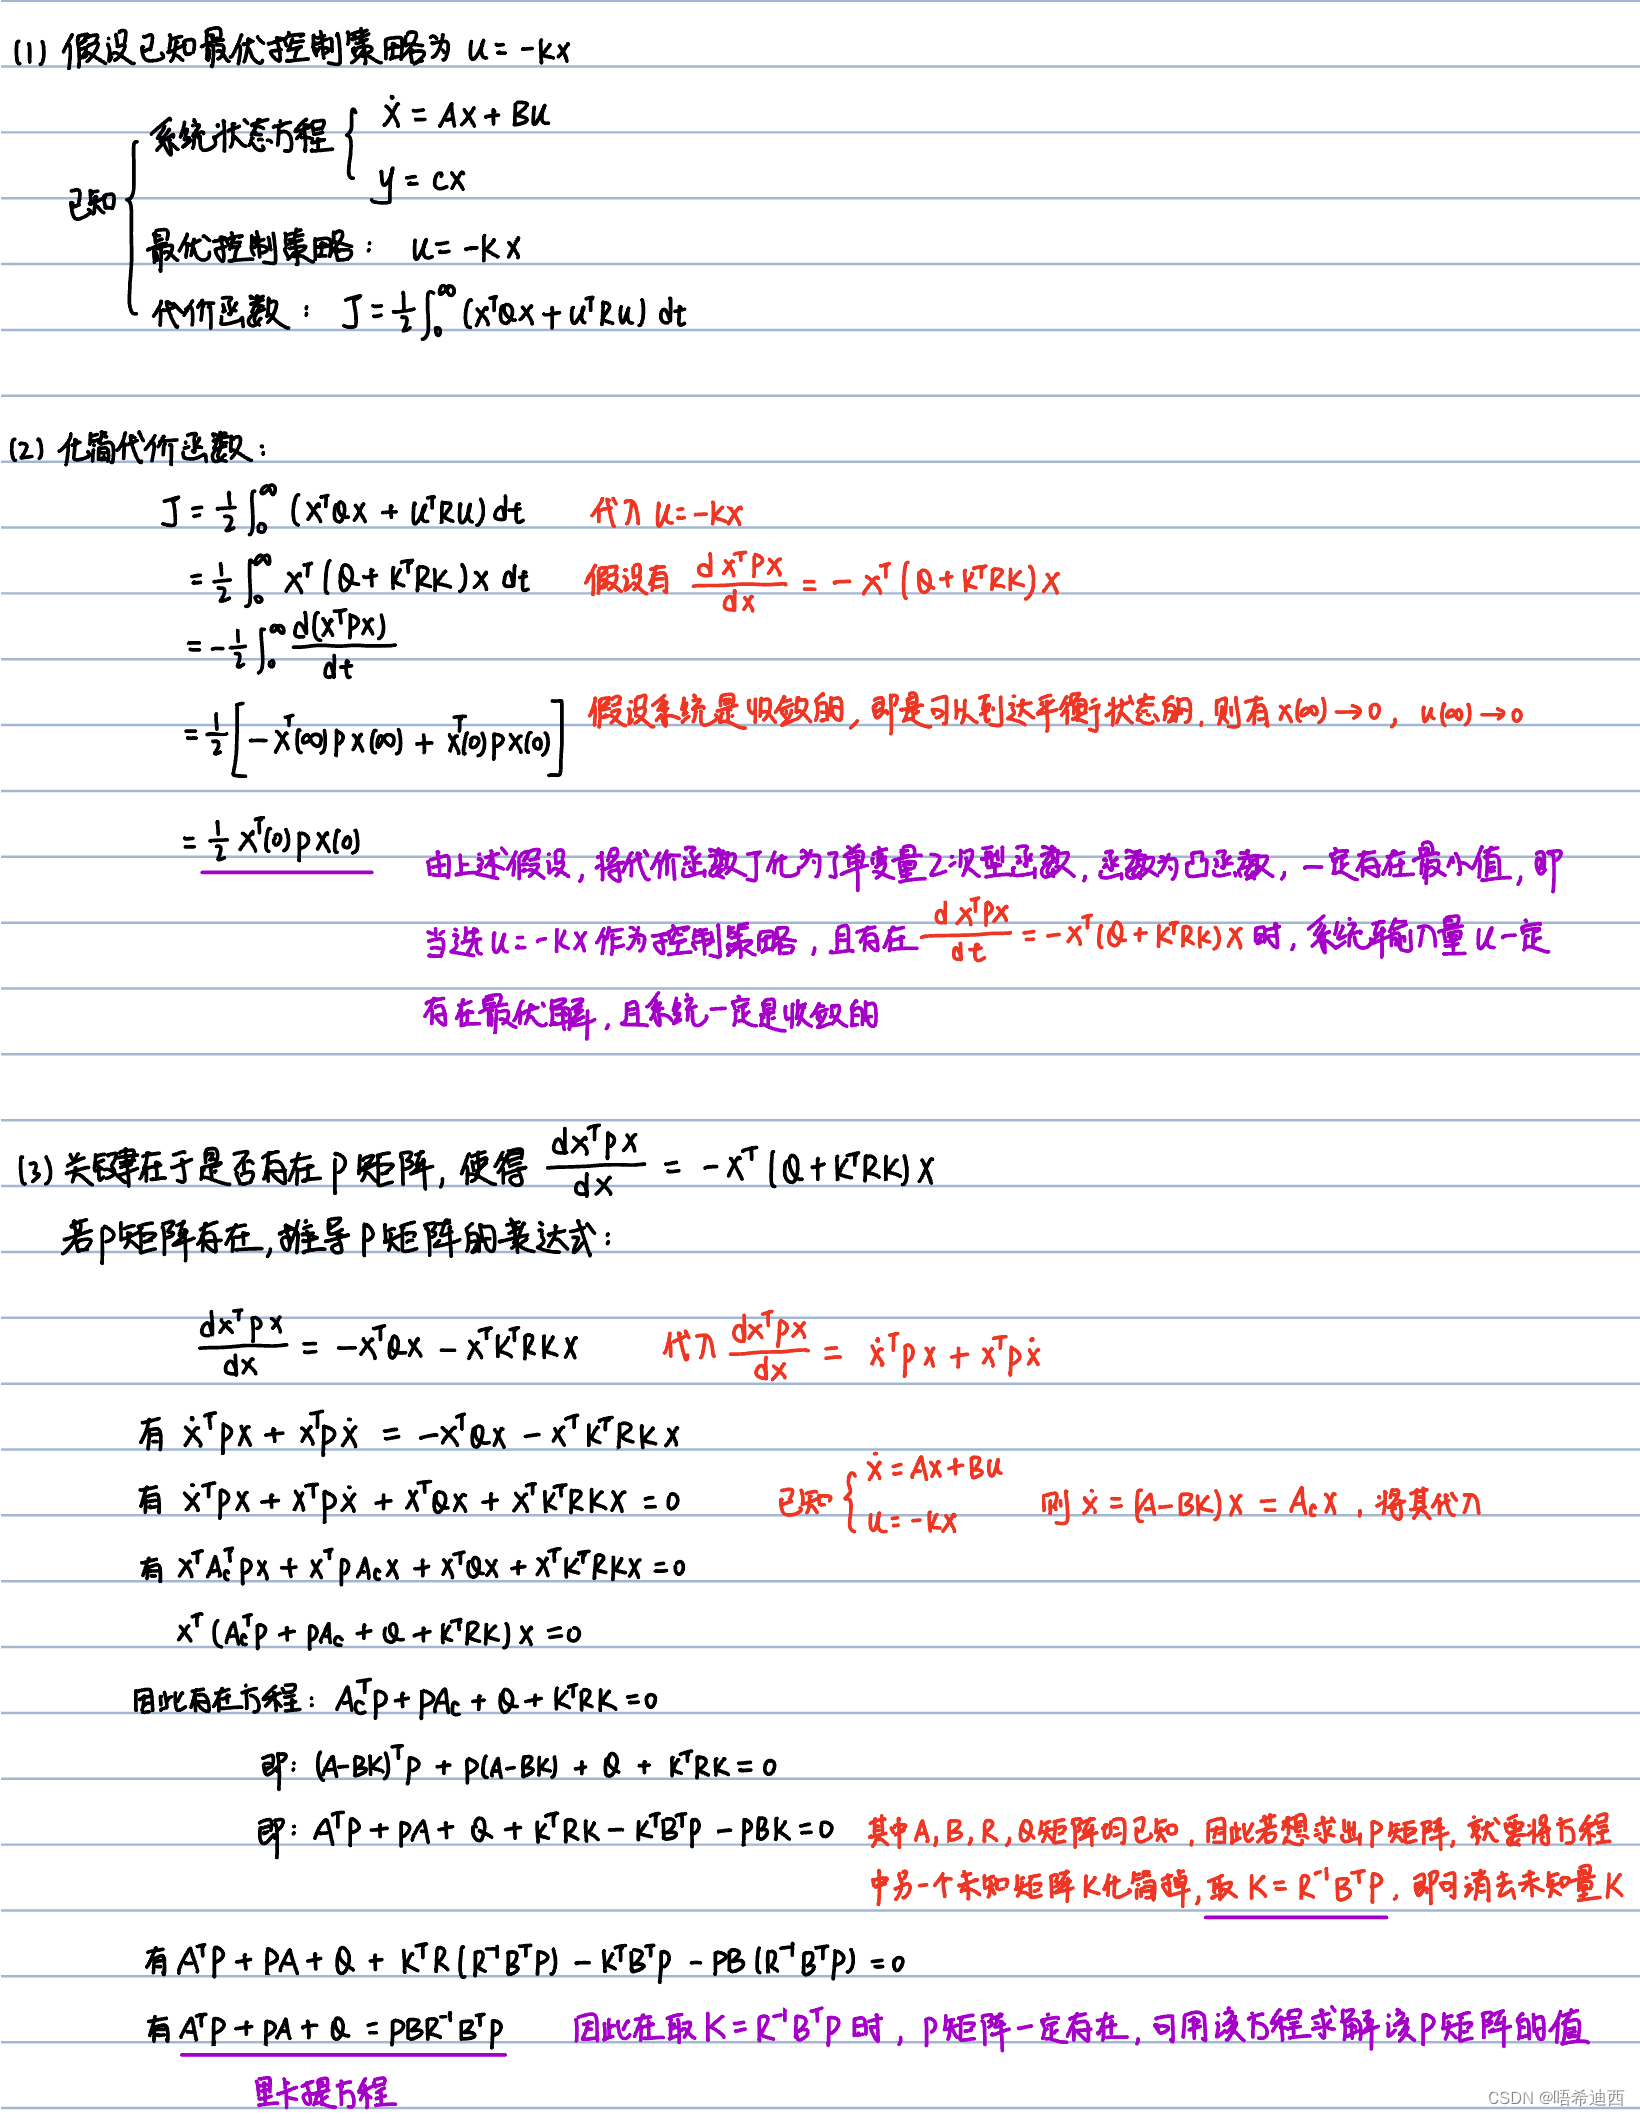 (1) 假设已知最优控制策略为 u = -kx
已知
系统状态方程 { ẋ = Ax + Bu
y = cx
最优控制策略： u = -Kx
代价函数： J = 1/2 ∫₀^∞ (xᵀQx + uᵀRu) dt
(2) 化简代价函数：
J = 1/2 ∫₀^∞ (xᵀQx + uᵀRu) dt 代入 u = -kx
= 1/2 ∫₀^∞ xᵀ(Q + KᵀRK)x dt 假设有 d xᵀPx / dx = -xᵀ(Q + KᵀRK)x
= -1/2 ∫₀^∞ d(xᵀPx) / dt
= 1/2 [-xᵀ(∞)Px(∞) + xᵀ(0)Px(0)] 假设系统是收敛的, 即是可以到达平衡状态的, 则有 x(∞)→0, u(∞)→0
= 1/2 xᵀ(0)Px(0) 由上述假设, 将代价函数J化为了单变量2次型函数, 函数为凸函数, 一定存在最小值, 即
当选 u = -Kx 作为控制策略, 且存在 d xᵀPx / dt = -xᵀ(Q + KᵀRK)x 时, 系统输入量 u 一定
存在最优解, 且系统一定是收敛的
(3) 关键在于是否存在 P 矩阵, 使得 dxᵀPx / dx = -xᵀ(Q + KᵀRK)x
若P矩阵存在, 推导 P 矩阵的表达式：
dxᵀPx / dx = -xᵀQx - xᵀKᵀRKx 代入 dxᵀPx / dx = ẋᵀPx + xᵀPẋ
有 ẋᵀPx + xᵀPẋ = -xᵀQx - xᵀKᵀRKx
有 ẋᵀPx + xᵀPẋ + xᵀQx + xᵀKᵀRKx = 0 已知 { ẋ = Ax + Bu
u = -kx 则 ẋ = (A-BK)x = Acx, 将其代入
有 xᵀAcᵀPx + xᵀPAcx + xᵀQx + xᵀKᵀRKx = 0
xᵀ(AcᵀP + PAc + Q + KᵀRK)x = 0
因此存在方程： AcᵀP + PAc + Q + KᵀRK = 0
即： (A-BK)ᵀP + P(A-BK) + Q + KᵀRK = 0
即： AᵀP + PA + Q + KᵀRK - KᵀBᵀP - PBK = 0 其中A, B, R, Q矩阵均已知, 因此若想求出P矩阵, 就要将方程
中另一个未知矩阵K化简掉, 取 K = R⁻¹BᵀP, 即可消去未知量K
有 AᵀP + PA + Q + KᵀR(R⁻¹BᵀP) - KᵀBᵀP - PB(R⁻¹BᵀP) = 0
有 AᵀP + PA + Q = PBR⁻¹BᵀP 因此在取 K = R⁻¹BᵀP 时, P矩阵一定存在, 可用该方程求解该P矩阵的值
里卡提方程
CSDN @唔希迪西